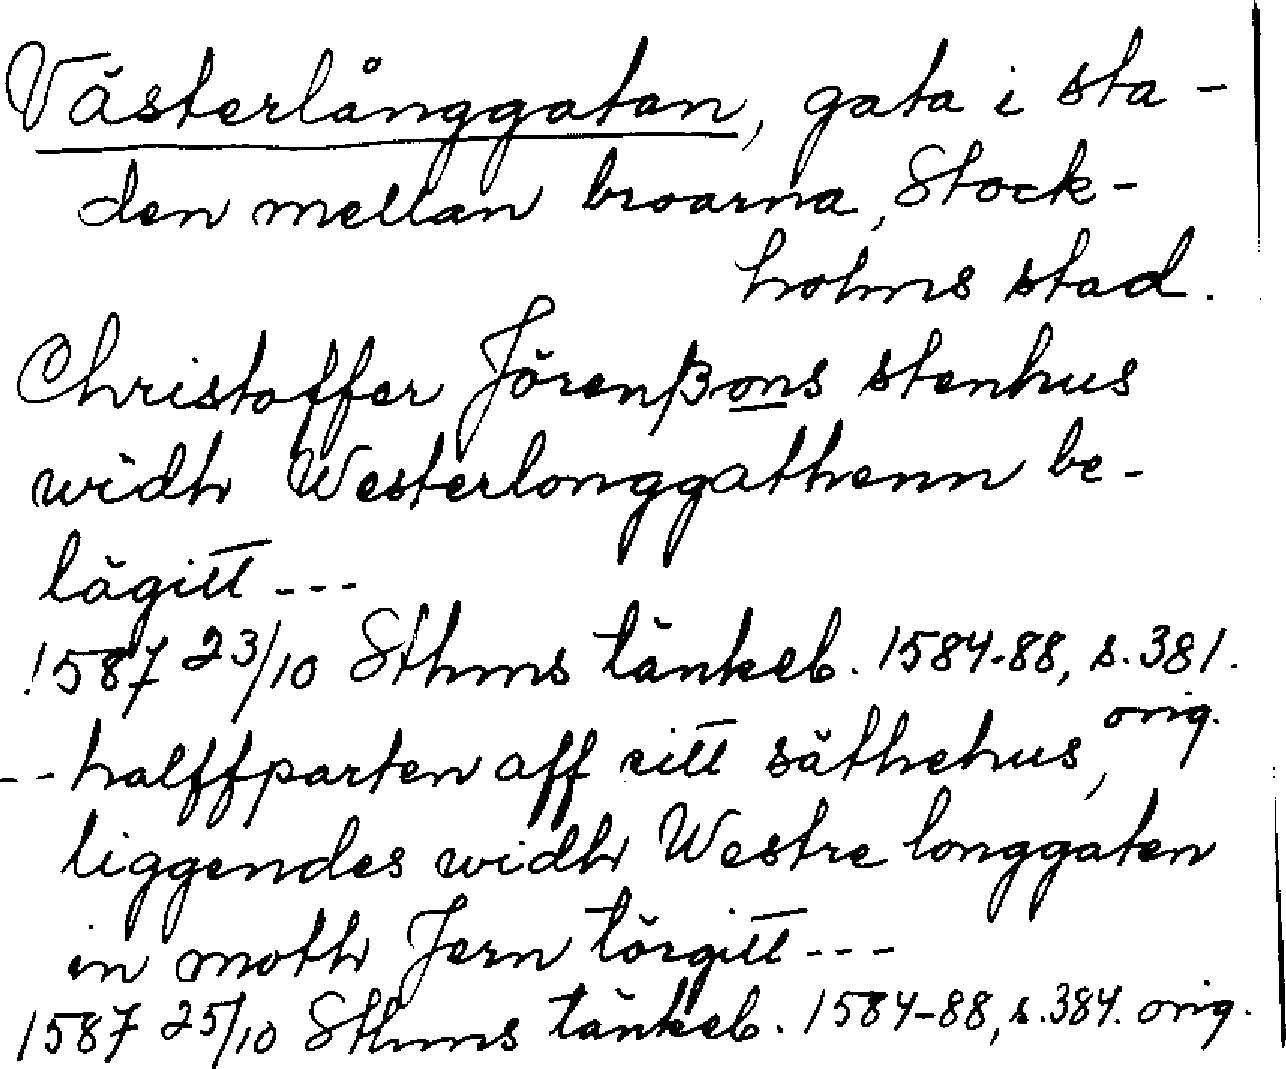 Västerlånggatan, gata i sta-
den mellan broarna, Stock-
holms stad.
Christoffer Jörenßons stenhus
widh Westerlonggathenn be-
lägitt ---
1587 23/10 Sthms tänkeb. 1584-88, s. 381.
orig.
-- halffparten aff sitt säthehus,
liggendes widh Westre longgaten
in moth Jern törgitt ---
1587 25/10 Sthms tänkeb. 1584-88, s. 384. orig.